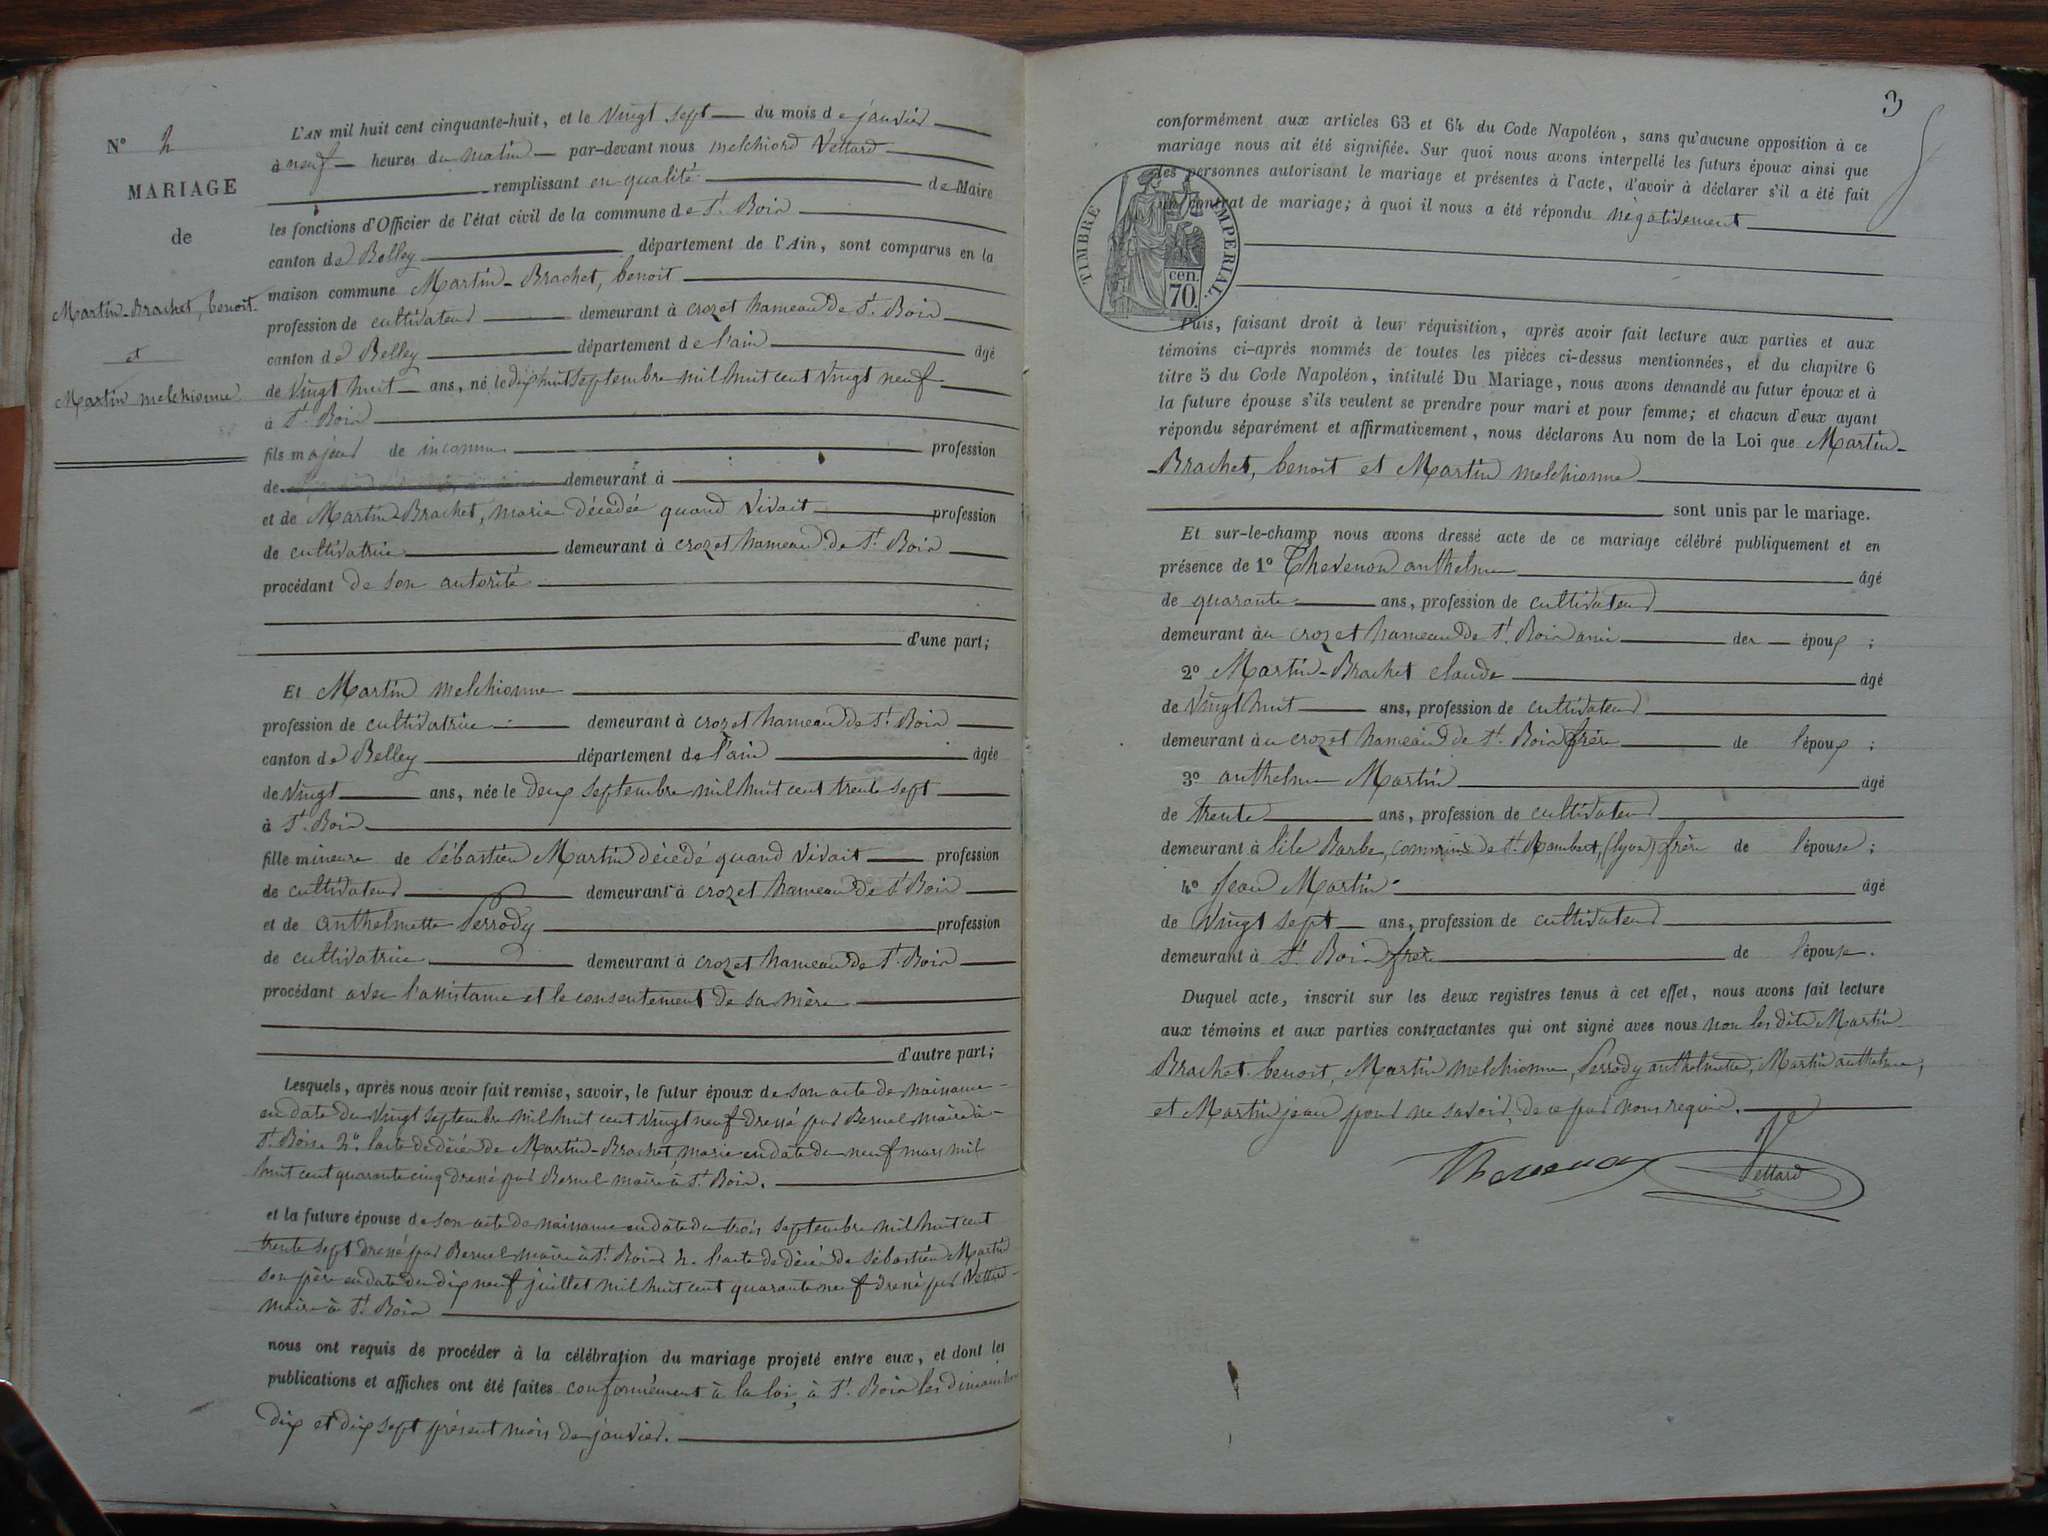 N° 2
MARIAGE
de
Martin-Brachet, benoit.
et
Martin melchionne
L'AN mil huit cent cinquante-huit, et le vingt sept du mois de janvier
à neuf heures du matin par-devant nous melchiord Vettard
remplissant en qualité de Maire
les fonctions d'Officier de l'état civil de la commune de St. Boin
canton de Belley département de l'Ain, sont comparus en la
maison commune Martin-Brachet, benoit
profession de cultivateur demeurant à crozet hameau de St. Boin
canton de Belley département de l'ain âgé
de vingt huit ans, né le dix huit septembre mil huit cent vingt neuf
à St. Boin
fils majeur de inconnu profession
de demeurant à
et de Martin-Brachet, marie décédée quand vivait profession
de cultivatrice demeurant à crozet hameau de St. Boin
procédant de son autorité
d'une part;
Et Martin melchionne
profession de cultivatrice demeurant à crozet hameau de St. Boin
canton de Belley département de l'ain âgée
de vingt ans, née le deux septembre mil huit cent trente sept
à St. Boin
fille mineure de Sébastien Martin décédé quand vivait profession
de cultivateur demeurant à crozet hameau de St Boin
et de anthelmette Perrody profession
de cultivatrice demeurant à crozet hameau de St. Boin
procédant avec l'assistance et le consentement de sa mère
d'autre part;
Lesquels, après nous avoir fait remise, savoir, le futur époux de son acte de naissance
en date du vingt septembre mil huit cent vingt neuf dressé par Bernel maire à
St. Boin 2° l'acte de décès de Martin-Brachet, marie en date du neuf mars mil
huit cent quarante cinq dressé par Bernel maire à St. Boin.
et la future épouse de son acte de naissance en date du trois septembre mil huit cent
trente sept dressé par Bernel maire à St. Boin 2. l'acte de décès de Sébastien Martin
son père en date du dix neuf juillet mil huit cent quarante neuf dressé par Vettard
maire à St. Boin
nous ont requis de procéder à la célébration du mariage projeté entre eux, et dont les
publications et affiches ont été faites conformément à la loi, à St. Boin les dimanches
dix et dix sept présent mois de janvier.
3
conformément aux articles 63 et 64 du Code Napoléon, sans qu'aucune opposition à ce
mariage nous ait été signifiée. Sur quoi nous avons interpellé les futurs époux ainsi que
les personnes autorisant le mariage et présentes à l'acte, d'avoir à déclarer s'il a été fait
un contrat de mariage; à quoi il nous a été répondu négativement
TIMBRE IMPERIAL.
cen.
70.
Puis, faisant droit à leur réquisition, après avoir fait lecture aux parties et aux
témoins ci-après nommés de toutes les pièces ci-dessus mentionnées, et du chapitre 6
titre 5 du Code Napoléon, intitulé Du Mariage, nous avons demandé au futur époux et à
la future épouse s'ils veulent se prendre pour mari et pour femme; et chacun d'eux ayant
répondu séparément et affirmativement, nous déclarons Au nom de la Loi que Martin-
Brachet, benoit et Martin melchionne
sont unis par le mariage.
Et sur-le-champ nous avons dressé acte de ce mariage célébré publiquement et en
présence de 1° Thevenon anthelme âgé
de quarante ans, profession de cultivateur
demeurant au crozet hameau de St. Boin ami des époux;
2° Martin-Brachet claude âgé
de vingt huit ans, profession de cultivateur
demeurant au crozet hameau de St. Boin frère de l'époux;
3° anthelme Martin âgé
de trente ans, profession de cultivateur
demeurant à l'ile Barbe, commune de St. Rambert, (lyon) frère de l'épouse;
4° Jean Martin âgé
de vingt sept ans, profession de cultivateur
demeurant à St. Boin frère de l'épouse.
Duquel acte, inscrit sur les deux registres tenus à cet effet, nous avons fait lecture
aux témoins et aux parties contractantes qui ont signé avec nous non les dits Martin
Brachet benoit, Martin melchionne, Perrody anthelmette, Martin anthelme,
et Martin jean pour ne savoir, de ce par nous requis.
Thevenon Vettard